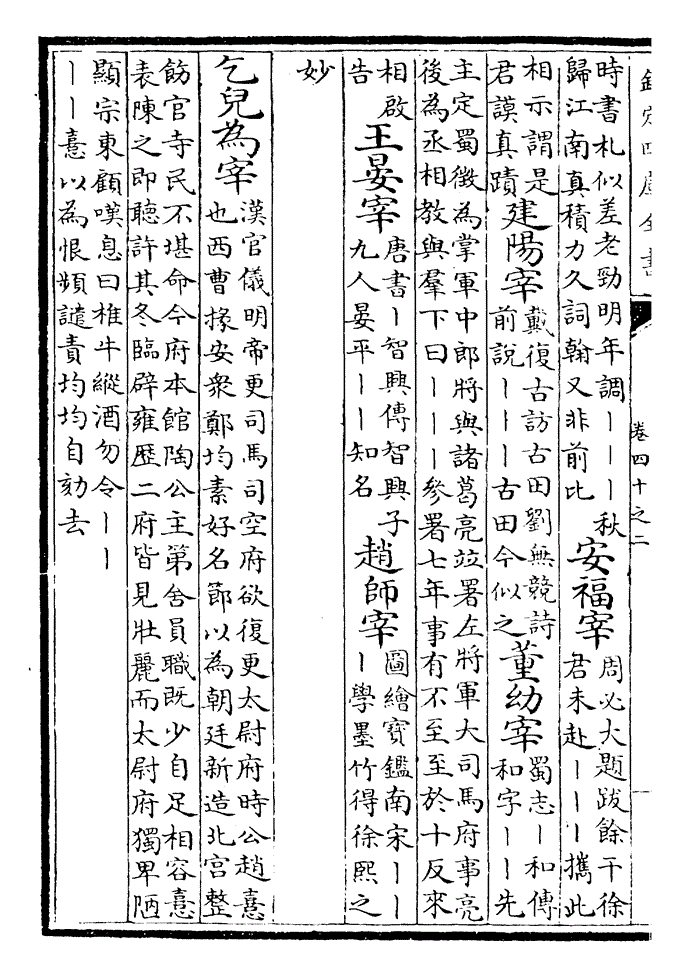 欽定四庫全書
卷四十之二
時書札似差老勁明年調丨丨丨秋
歸江南真積力久詞翰又非前比
安福宰
周必大題跋餘干徐
君未赴丨丨丨攜此
相示謂是
君謨真蹟
建陽宰
戴復古訪古田劉無競詩
前說丨丨丨古田今似之
董幼宰
蜀志丨和傳
和字丨丨先
主定蜀徵為掌軍中郎將與諸葛亮竝署左將軍大司馬府事亮
後為丞相教與羣下曰丨丨丨參署七年事有不至至於十反來
相啟
告
王晏宰
唐書丨智興傳智興子
九人晏平丨丨知名
趙師宰
圖繪寶鑑南宋丨丨
丨學墨竹得徐熙之
妙
乞兒為宰
漢官儀明帝更司馬司空府欲復更太尉府時公趙憙
也西曹掾安衆鄭均素好名節以為朝廷新造北宮整
飭官寺民不堪命今府本館陶公主第舍員職既少自足相容憙
表陳之即聽許其冬臨辟雍歷二府皆見壯麗而太尉府獨卑陋
顯宗東顧嘆息曰椎牛縱酒勿令丨丨
丨丨憙以為恨頻譴責均均自劾去